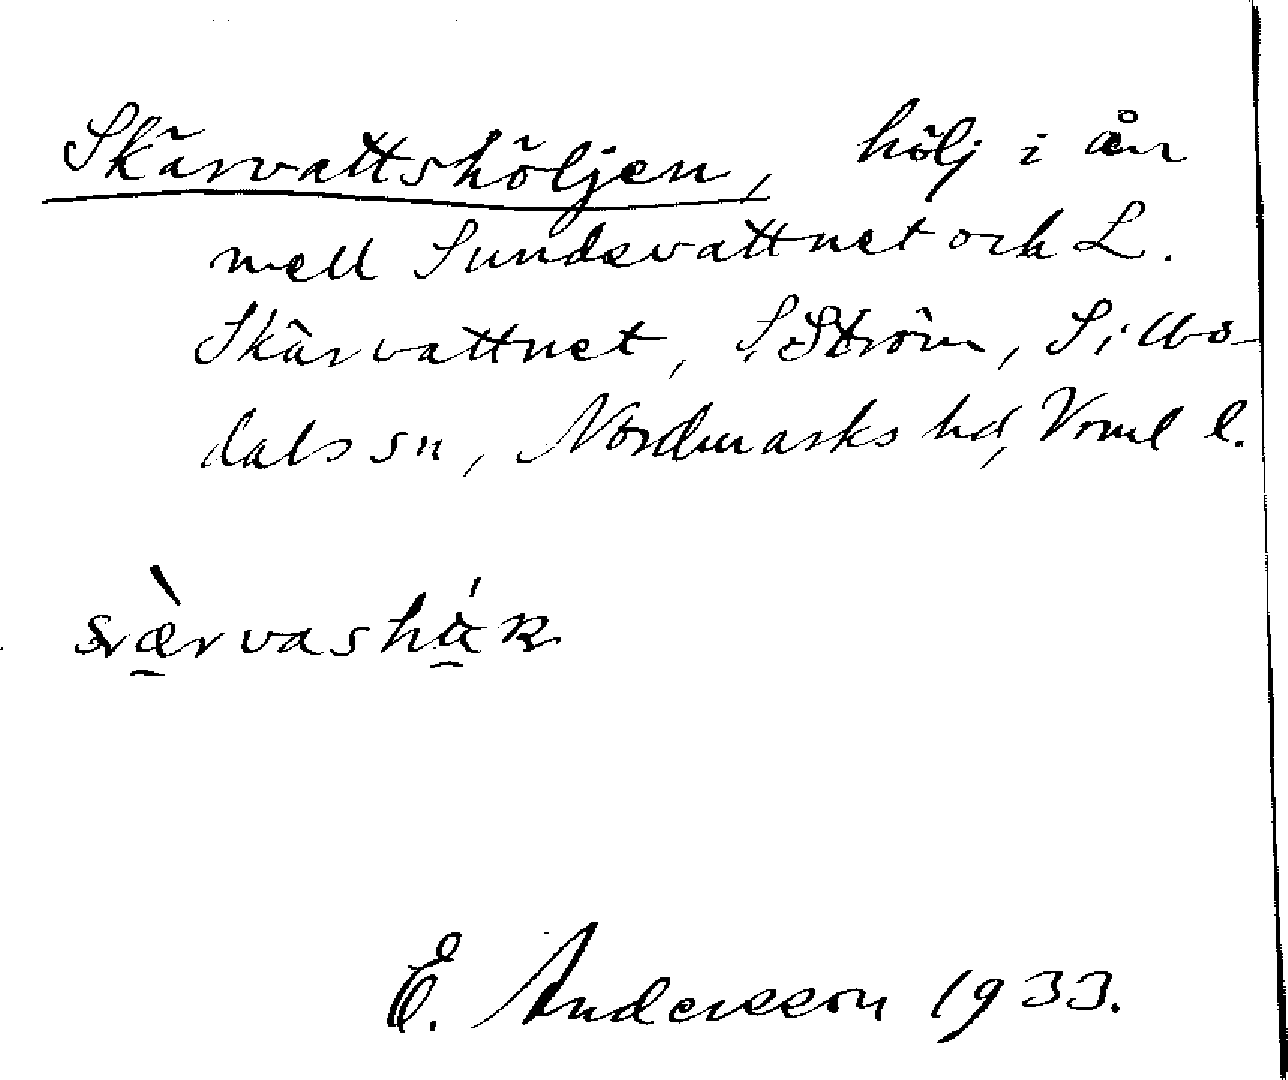 Skärvattshöljen, hölj i ån
mell Sundsvattnet och L.
Skärvattnet, S. Ström, Sillbo-
dals sn, Nordmarks hd, Vrml l.
E. Andersson 1933.